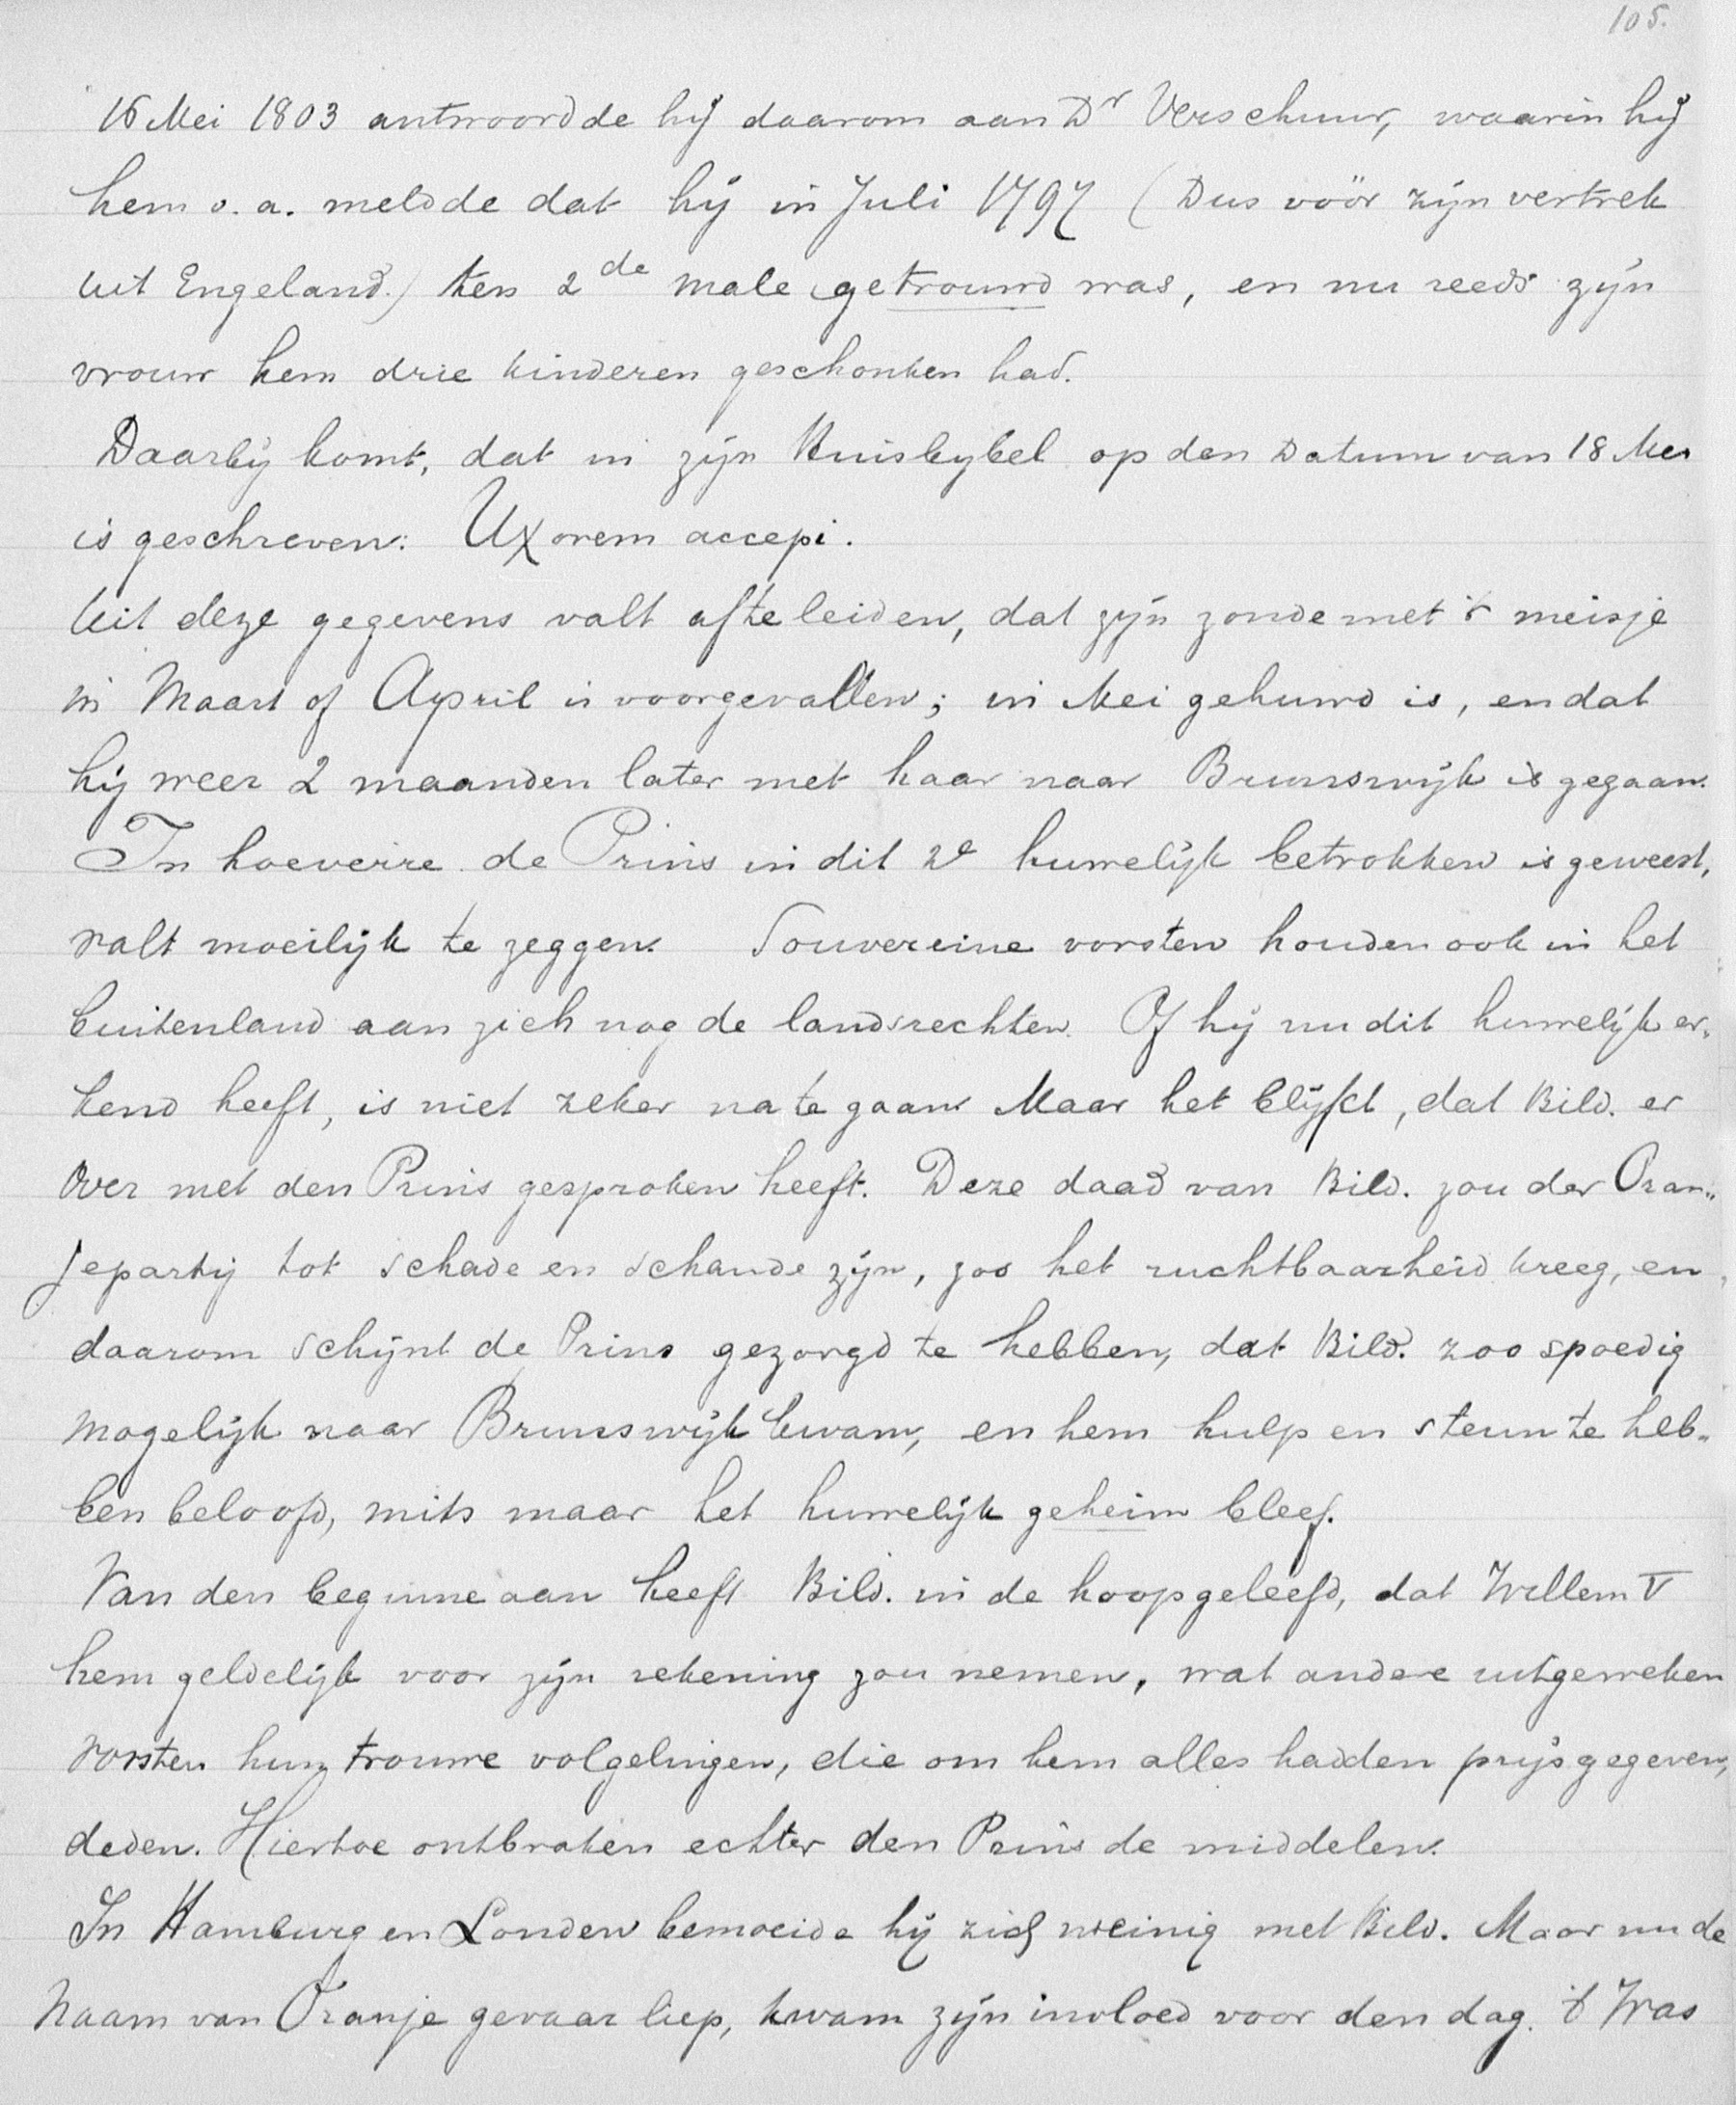 105.
16 Mei 1803 antwoordde hij daarom aan Dr Verschuur, waarin hij
hem o.a. meldde dat hij in Juli 1797 (Dus vöör zijn vertrek
uit Engeland.) ten 2de male getrouwd was, en nu reeds zijn
vrouw hem drie kinderen geschonken had.
Daarbij komt, dat in zijn Huisbybel op den Datum van 18 Mei
is geschreven: Uxorem accepi.
Uit deze gegevens valt afteleiden, dat zijn zonde met 't meisje
in Maart of April is voorgevallen; in Mei gehuwd is, en dat
hij weer 2 maanden later met haar naar Brunswijk is gegaan.
In hoeverre de Prins in dit 2e huwelijk betrokken is geweest,
valt moeilijk te zeggen. Souvereine vorsten houden ook in het
buitenland aan zich nog de landsrechten. Of hij nu dit huwelijk er-
kend heeft, is niet zeker na te gaan. Maar het blijkt, dat Bild. er
over met den Prins gesproken heeft. Deze daad van Bild. zou der Oran-
jepartij tot schade en schande zijn, zoo het ruchtbaarheid kreeg, en
daarom schijnt de Prins gezorgd te hebben, dat Bild. zoo spoedig
mogelijk naar Brunswijk kwam, en hem hulp en steun te heb-
ben beloofd, mits maar het huwelijk geheim bleef.
Van den beginne aan heeft Bild. in de hoop geleefd, dat Willem V
hem geldelijk voor zijn rekening zou nemen, wat andere uitgeweken
vorsten hun trouwe volgelingen, die om hem alles hadden prijsgegeven,
deden. Hiertoe ontbraken echter den Prins de middelen.
In Hamburg en Londen bemoeide hij zich weinig met Bild. Maar nu de
Naam van Oranje gevaar liep, kwam zijn invloed voor den dag. 't Was